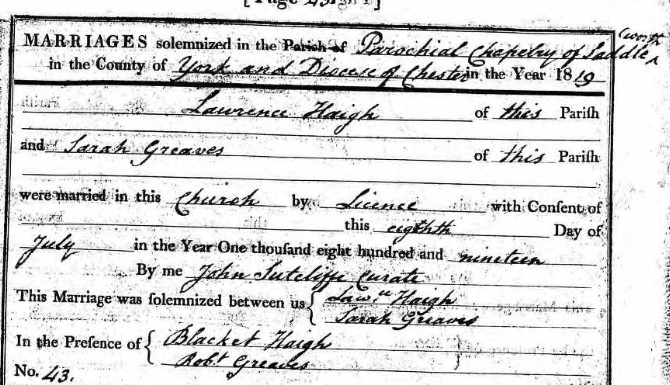 MARRIAGES solemnized in the Parish of Parochial Chapelry of Saddleworth
in the County of York and Diocese of Chester in the Year 1819
Lawrence Haigh of this Parish
and Sarah Greaves of this Parish
were married in this Church by Licence with Consent of
this eighth Day of
July in the Year One thousand eight hundred and nineteen
By me John Sutcliffe Curate
This Marriage was solemnized between us { Lawce Haigh
Sarah Greaves
In the Presence of { Blacket Haigh
Robt Greaves
No. 43.